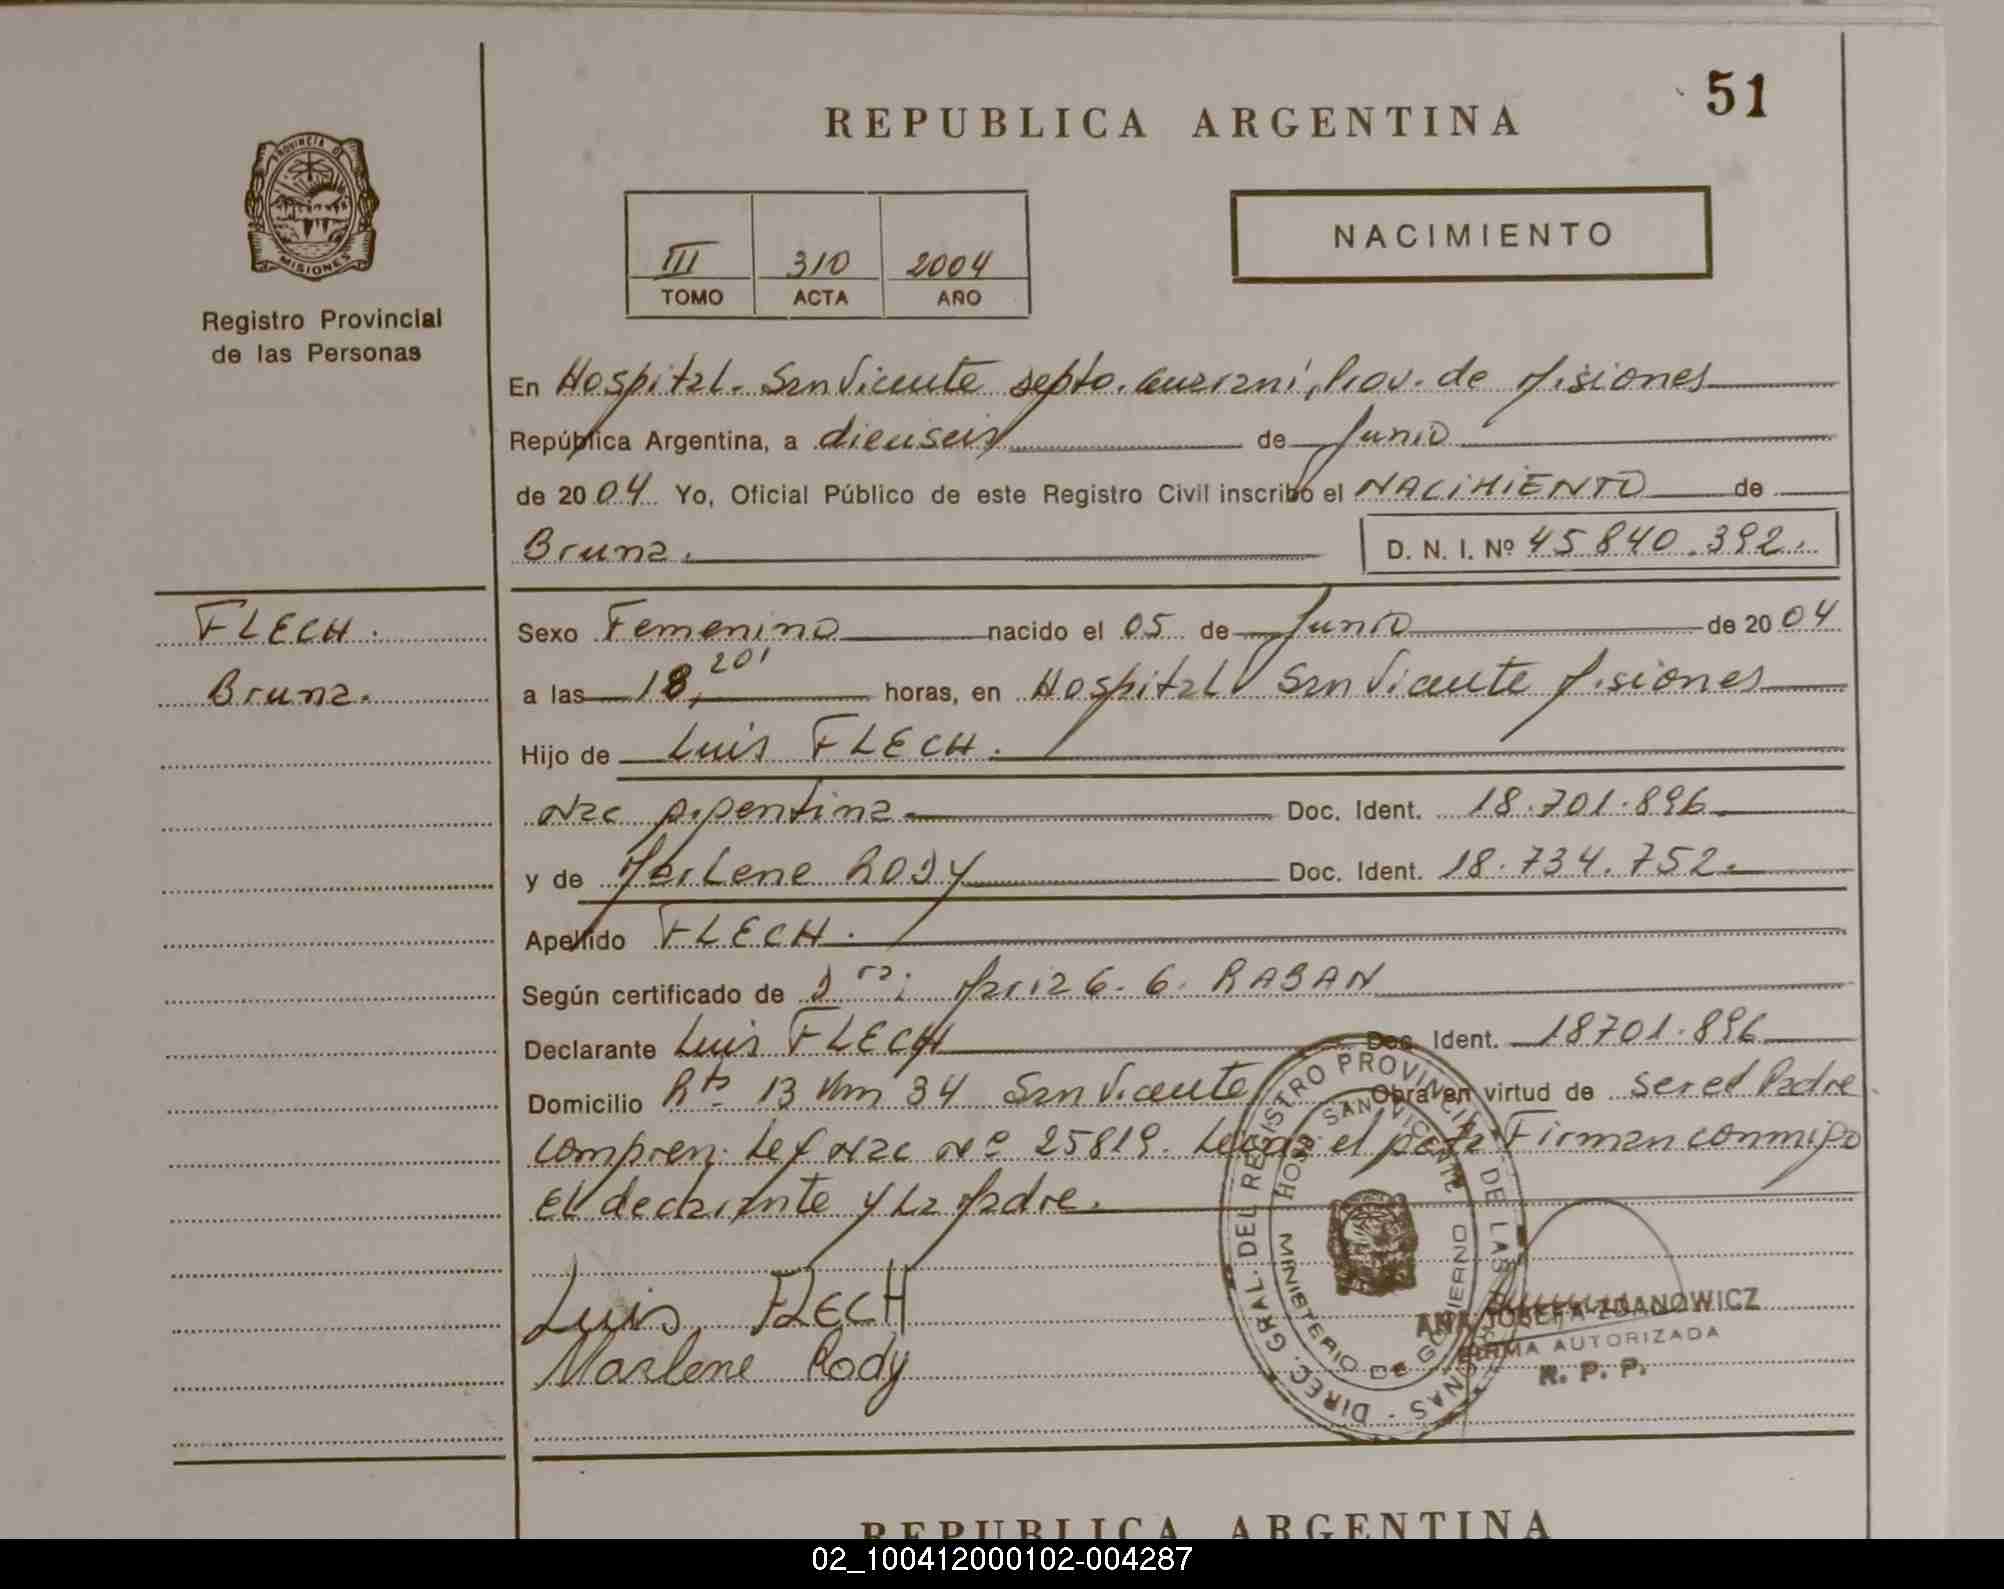 51
REPUBLICA ARGENTINA
PROVINCIA DE
MISIONES
Registro Provincial
de las Personas
III 310 2004
TOMO ACTA AÑO
NACIMIENTO
En Hospital. San Vicente Depto. Guaraní, Prov. de Misiones
República Argentina, a dieciseis de Junio
de 2004 Yo, Oficial Público de este Registro Civil inscribo el NACIMIENTO de
Bruna.
D. N. I. Nº 45840.392.
FLECH.
Bruna.
Sexo Femenino nacido el 05 de Junio de 2004
a las 18,20' horas, en Hospital San Vicente Misiones
Hijo de Luis FLECH.
Nac Argentina Doc. Ident. 18.701.896
y de Marlene RODY Doc. Ident. 18.734.752.
Apellido FLECH.
Según certificado de Dra: Maria G. G. RABAN
Declarante Luis FLECH Doc. Ident. 18701.896
Domicilio Rta 13 Km 34 San Vicente Obra en virtud de ser el Padre
compren. Nac Nº 25819. el Firman conmigo
El declarante y la Madre.
Luis FLECH
Marlene Rody
DIREC. GRAL. DEL REGISTRO PROVINCIAL DE LAS PERSONAS
HOSP. SAN VICENTE
MINISTERIO DE GOBIERNO
ANA JOSEFA ZDANOWICZ
FIRMA AUTORIZADA
R. P. P.
REPUBLICA ARGENTINA
02_100412000102-004287